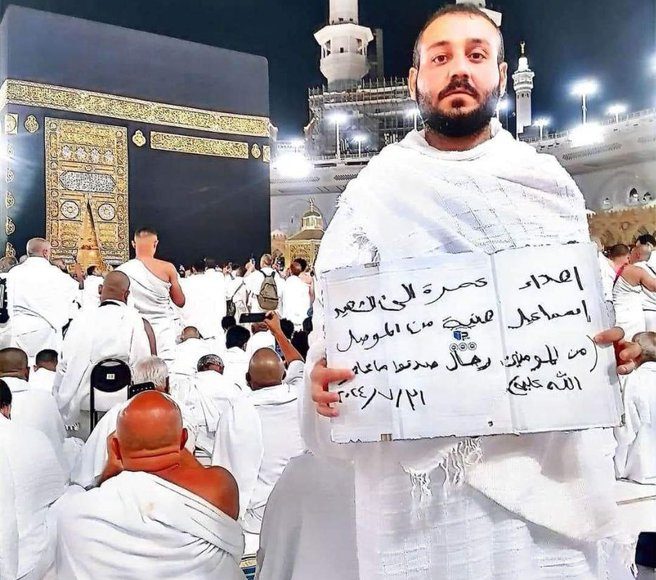 اهداء عمرة الى الشهيد
إسماعيل هنية من الموصل
(من المومنين رجال صدقوا ما عاهدو
الله عليه) ٢٠٢٤/٧/٣١